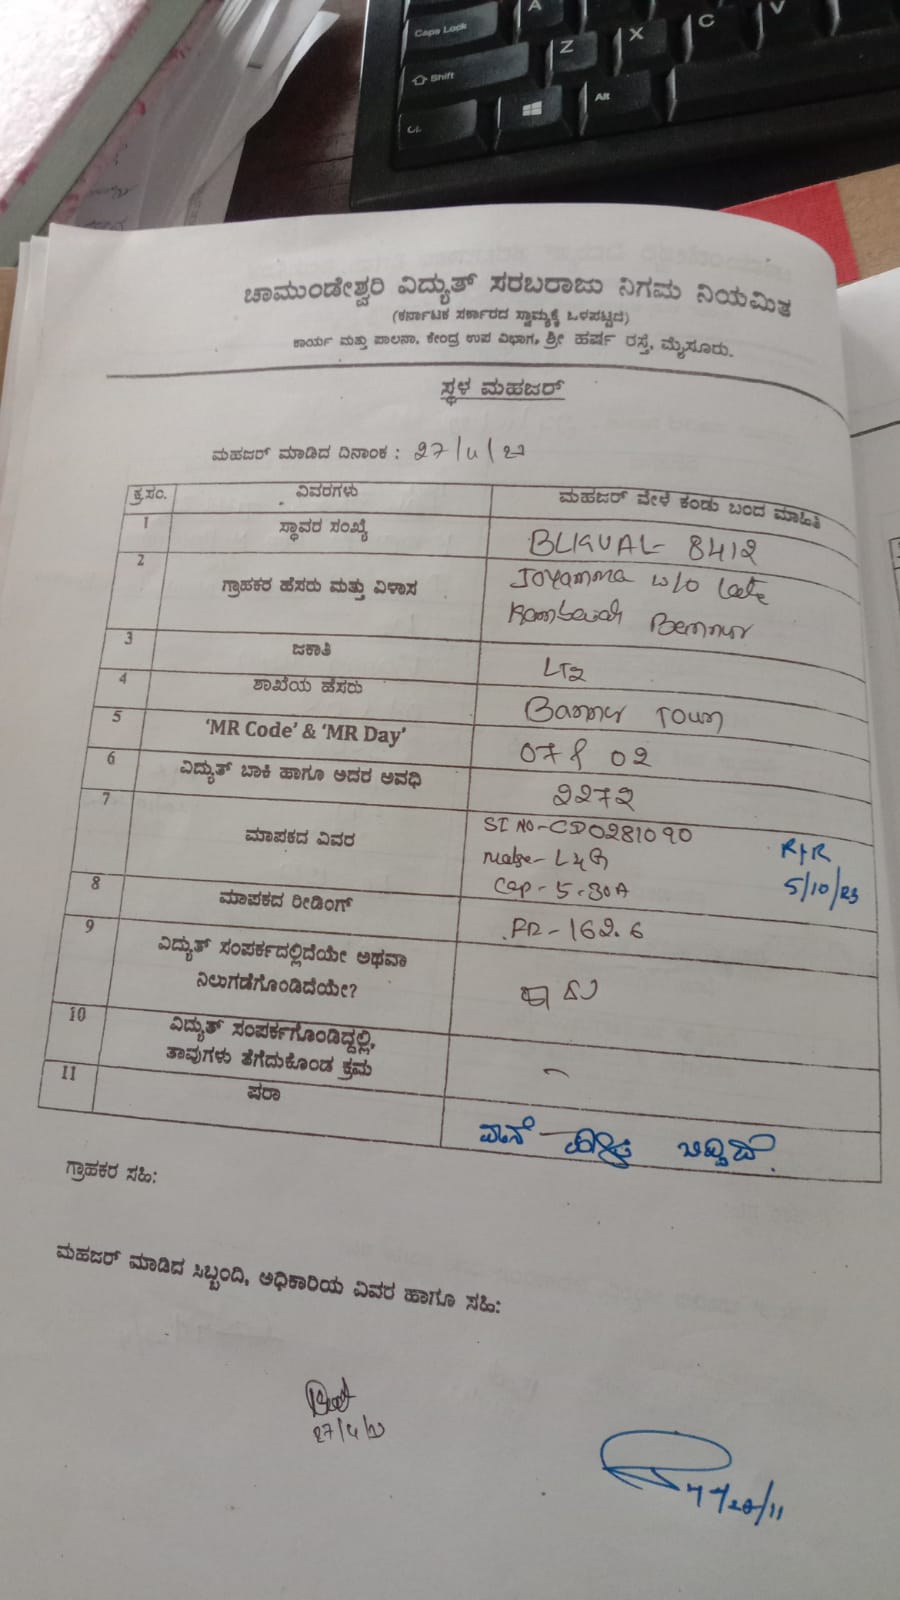 Caps Lock
A
Shift
Z
X
C
V
Alt
ಚಾಮುಂಡೇಶ್ವರಿ ವಿದ್ಯುತ್ ಸರಬರಾಜು ನಿಗಮ ನಿಯಮಿತ
(ಕರ್ನಾಟಕ ಸರ್ಕಾರದ ಸ್ವಾಮ್ಯಕ್ಕೆ ಒಳಪಟ್ಟಿದೆ)
ಕಾರ್ಯ ಮತ್ತು ಪಾಲನಾ, ಕೇಂದ್ರ ಉಪ ವಿಭಾಗ, ಶ್ರೀ ಹರ್ಷ ರಸ್ತೆ, ಮೈಸೂರು.
ಸ್ಥಳ ಮಹಜರ್
ಮಹಜರ್ ಮಾಡಿದ ದಿನಾಂಕ :
ಕ್ರ.ಸಂ. ವಿವರಗಳು ಮಹಜರ್ ವೇಳೆ ಕಂಡು ಬಂದ ಮಾಹಿತಿ
1 ಸ್ಥಾವರ ಸಂಖ್ಯೆ 8412
2 ಗ್ರಾಹಕರ ಹೆಸರು ಮತ್ತು ವಿಳಾಸ w/o late
3 ಜಕಾತಿ LT2
4 ಶಾಖೆಯ ಹೆಸರು Bannur Town
5 'MR Code' & 'MR Day' 07 & 02
6 ವಿದ್ಯುತ್ ಬಾಕಿ ಹಾಗೂ ಅದರ ಅವಧಿ 2272
7 ಮಾಪಕದ ವಿವರ SI NO-CD0281090
Make- L&G
Cap- 5-30A
R&R
5/10/23
8 ಮಾಪಕದ ರೀಡಿಂಗ್ FR-162.6
9 ವಿದ್ಯುತ್ ಸಂಪರ್ಕದಲ್ಲಿದೆಯೇ ಅಥವಾ
ನಿಲುಗಡೆಗೊಂಡಿದೆಯೇ?
10 ವಿದ್ಯುತ್ ಸಂಪರ್ಕಗೊಂಡಿದ್ದಲ್ಲಿ,
ತಾವುಗಳು ತೆಗೆದುಕೊಂಡ ಕ್ರಮ
11 ಷರಾ
ಗ್ರಾಹಕರ ಸಹಿ:
ಮಹಜರ್ ಮಾಡಿದ ಸಿಬ್ಬಂದಿ, ಅಧಿಕಾರಿಯ ವಿವರ ಹಾಗೂ ಸಹಿ: